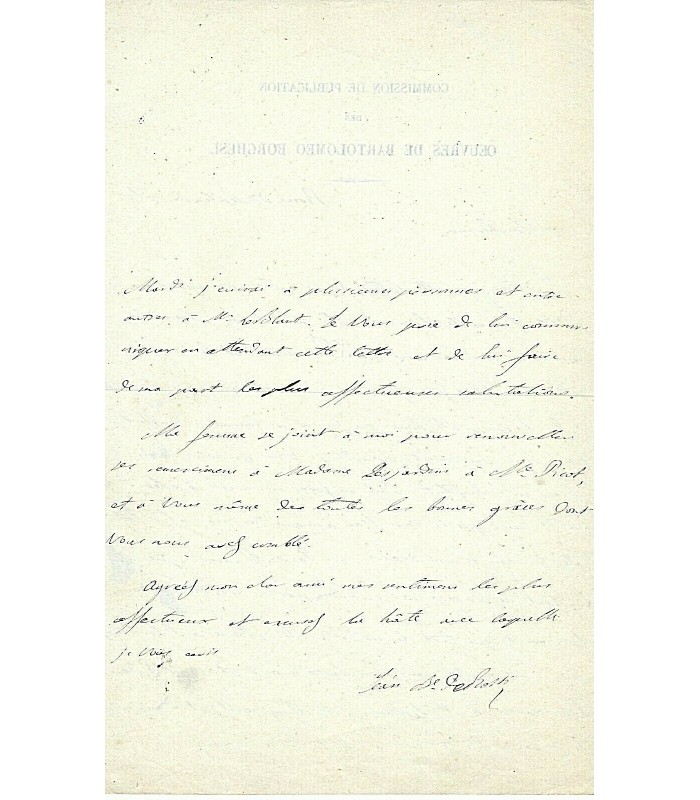 COMMISSION DE PUBLICATION
DES
ŒUVRES DE BARTOLOMEO BORGHESI.
Mardi j'ecrirai à plusieurs personnes et entre
autres à Mr. LeBlant. Je vous prie de lui commu
niquer en attendant cette lettre et de lui faire
de ma part les plus affectueuses salutations.
Ma femme se joint à moi pour renouveller
ses remercimens à Madame Desjardins à Mlle Picot,
et à vous même de toutes les bonnes grâces dont
vous nous avez comblé.
Agréez mon cher ami mes sentimens les plus
affectueux et excusez la hâte avec laquelle
je vous écris
Jean Bte. de Rossi